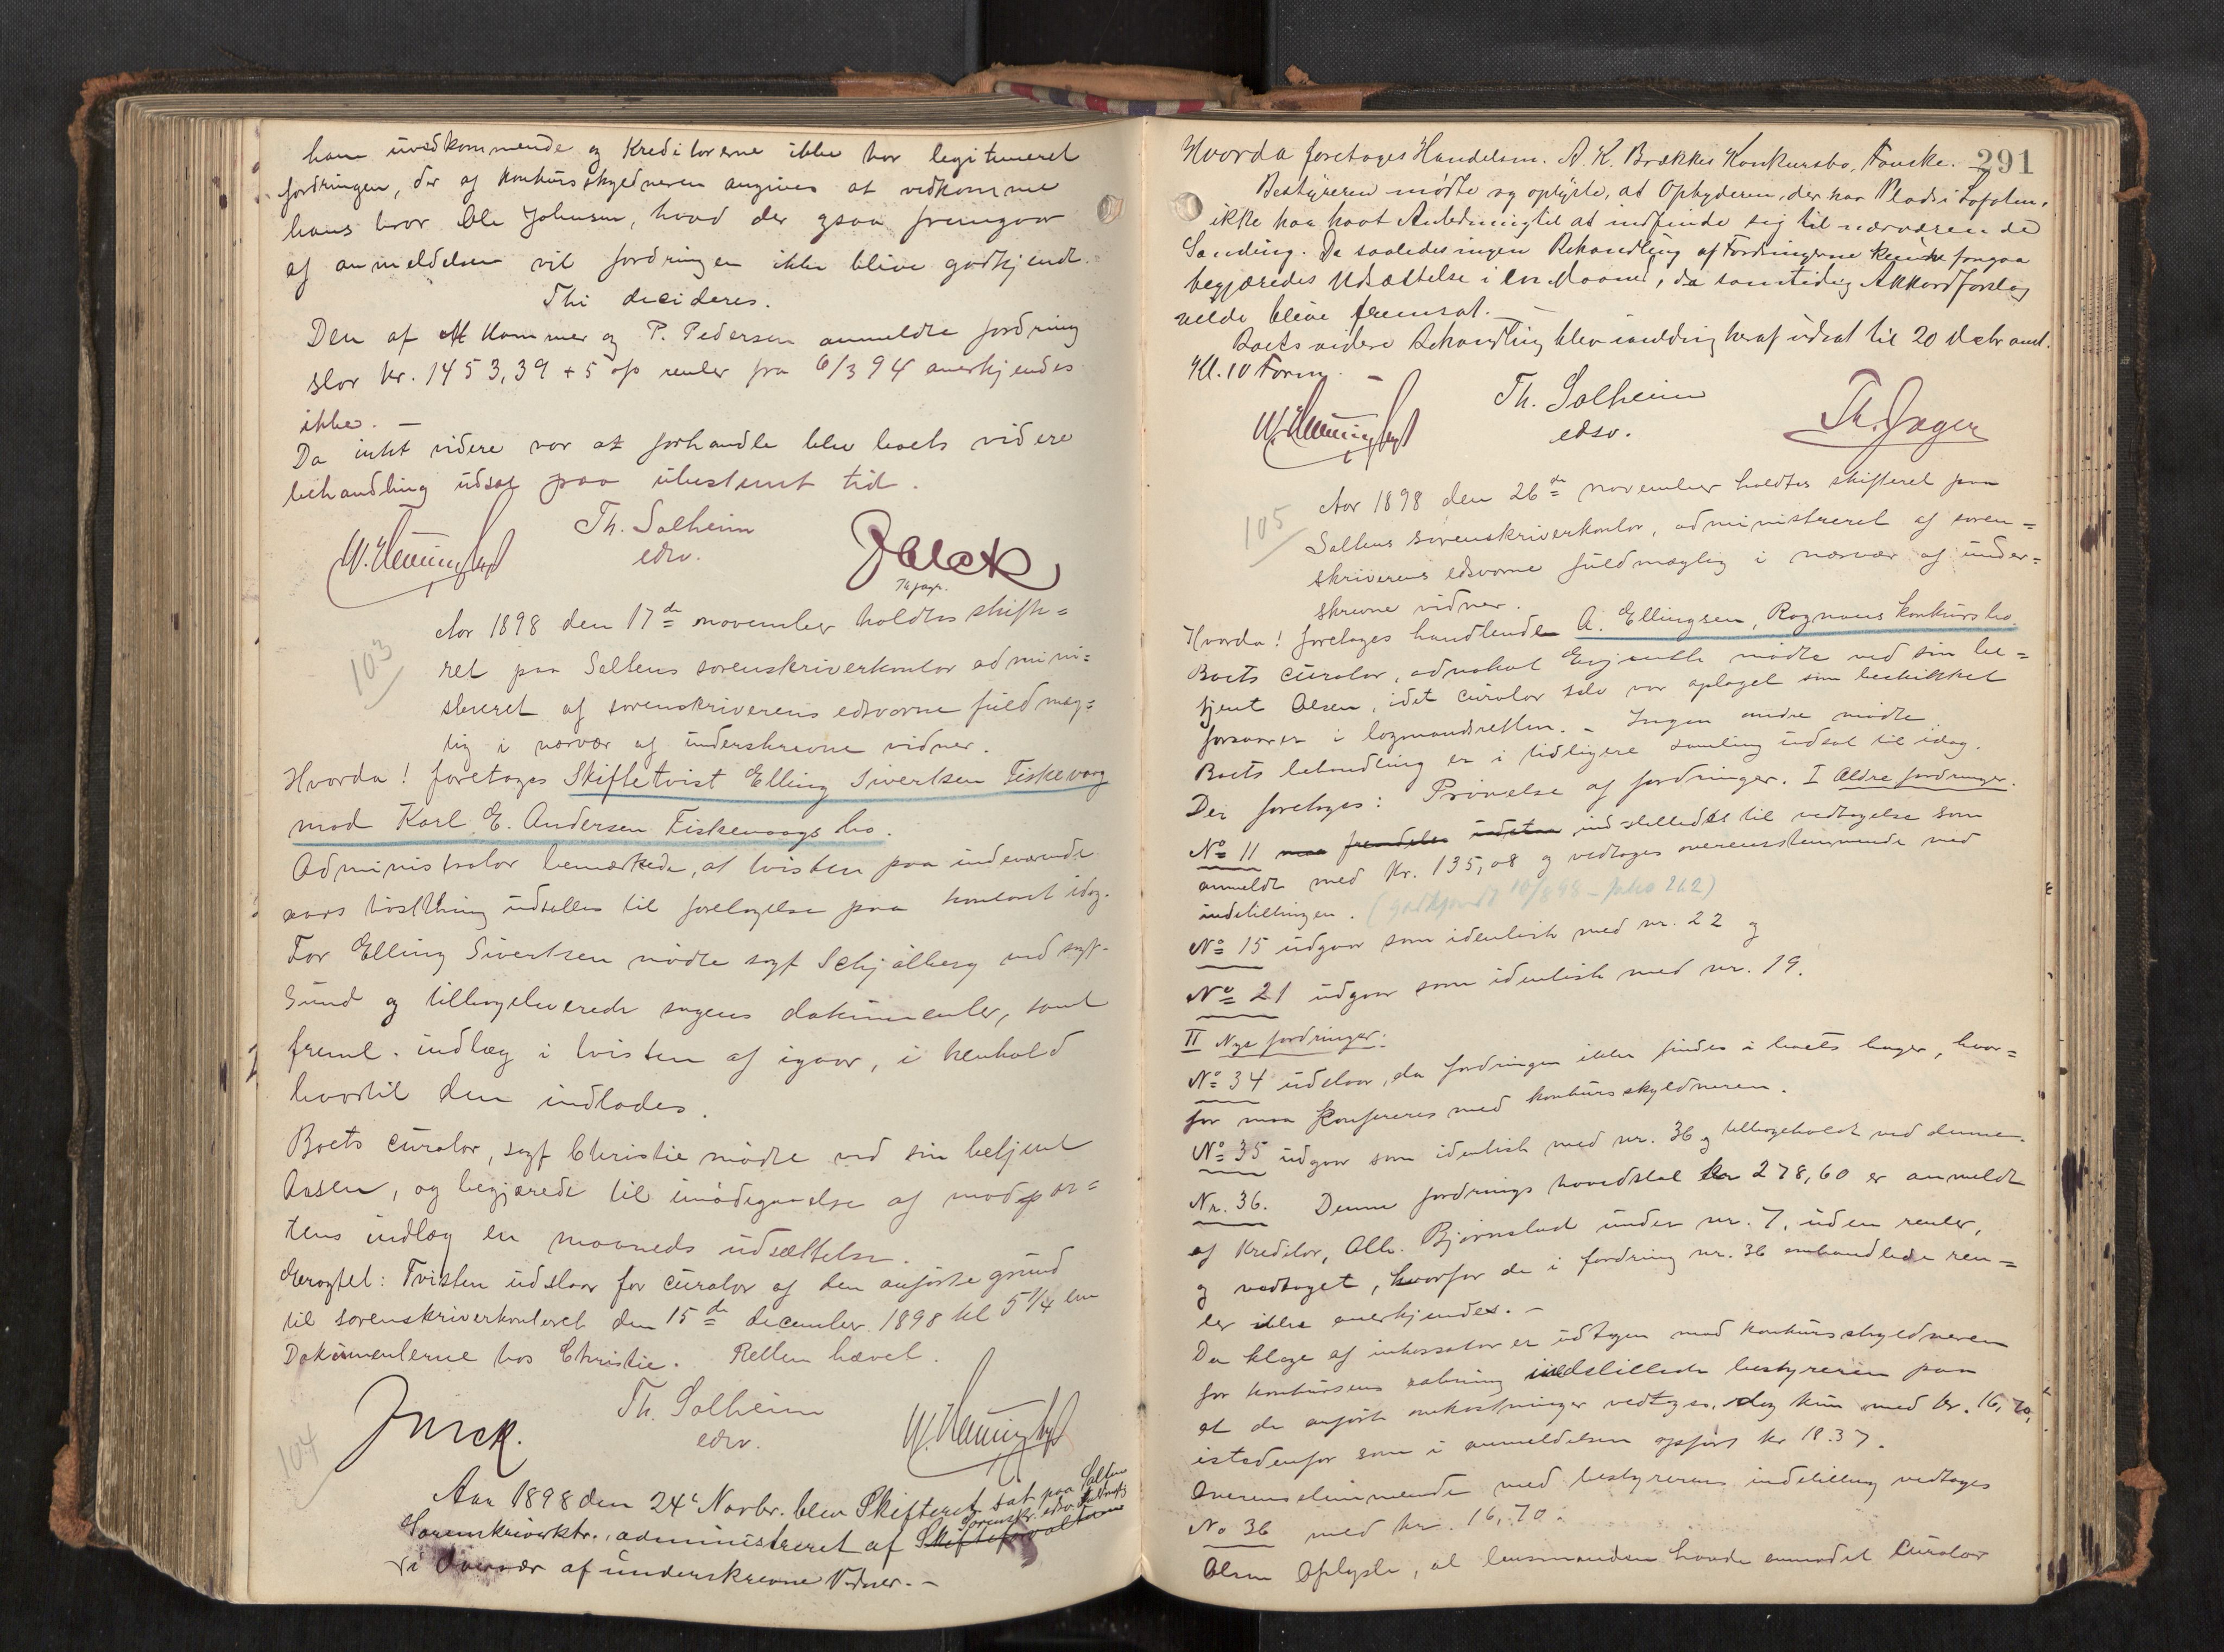 ham uvedkommende og Kreditorerne ikke har legitimeret
fordringen, der af konkursskyldneren angives at vedkomme
hans bror Ole Johnsen, hvad der ogsaa fremgaar
af anmeldelsen vil fordringen ikke blive godkjendt.
Thi decideres.
Den af Hammer og P. Pedersen anmeldte fordring
stor kr. 1453,39 + 5 o/o renter fra 6/3 94 anerkjendes
ikke. —
Da intet videre var at forhandle blev boets videre
behandling udsat paa ubestemt tid.
Th. Solheim
edsv.
Th Jager.
103
Aar 1898 den 17de november holdtes skifte=
ret paa Saltens sorenskriverkontor admini=
streret af sorenskriverens edsvorne fuldmæg=
tig i nærvær af underskrevne vidner.
Hvorda! foretoges Skiftetvist Elling Sivertsen Fiskevaag
mod Karl E. Andersen Fiskevaags bo.
Administrator bemærkede, at tvisten paa indeværende
aars høstthing udsattes til foretagelse paa kontoret idag.
For Elling Sivertsen mødte sagf Schjølberg ved sagf.
Sund og tilbageleverede sagens dokumenter, samt
freml. indlæg i tvisten af igaar, i henhold
hvortil den indlodes.
Boets curator, sagf Christie mødte ved sin betjent
Aasen, og begjærede til imødegaaelse af modpar=
tens indlæg en maaneds udsættelse.
Eragtet: Tvisten udstaar for curator af den anførte grund
til sorenskriverkontoret den 15de december 1898 kl 5 1/4 em
Dokumenterne hos Christie. Retten hævet.
Th. Solheim
edsv.
104
Aar 1898 den 24' Novbr. blev Skifteret sat paa Salten
Sorenskriverktr., administreret af Skifteforvalteren
Sorenskr. edsv.
i Overvær af underskrevne Vidner. —
291
Hvorda foretoges Handelsm. A. K. Brækkes Konkursbo, Fauske.
Bestyreren mødte og oplyste, at Opbyderen, der har Plads i Lofoten,
ikke har havt Anledning til at indfinde sig til nærværende
Samling. Da saaledes ingen Behandling af Fordringerne kunde foregaa
begjæredes Udsættelse i en Maaned, da samtidig Akkordforslag
vilde blive fremsat. —
Boets videre Behandling blev i anledning heraf udsat til 20 Decbr anst.
Kl. 10 Form. —
Th. Solheim
edsv.
Th. Jager
105
Aar 1898 den 26de november holdtes skifteret paa
Saltens sorenskriverkontor, administreret af soren=
skriverens edsvorne fuldmægtig i nærvær af under=
skrevne vidner.
Hvorda! foretoges handlende A. Ellingsen, Rognans konkursbo.
Boets curator, advokat Evjenth mødte ved sin be=
tjent Olsen, idet curator selv var optaget som beskikket
forsvarer i lagmandsretten. – Ingen andre mødte.
Boets behandling er i tidligere samling udsat til idag.
Der foretoges: Prøvelse af fordringer. I Ældre fordringer.
No 11 indstilledes til vedtagelse som
anmeldt med kr. 135,08 og vedtages overensstemmende med
indstillingen. (godkjendt 10/8 98 – folio 262)
No 15 udgaar som identisk med nr. 22 og
No 21 udgaar som identisk med nr. 19.
II Nye fordringer.
No 34 udstaar, da fordringen ikke findes i boets bøger, hvor=
for maa konfereres med konkursskyldneren.
No 35 udgaar som identisk med nr. 36 og tilbageholdt ved denne.
Nr. 36. Denne fordrings hovedstol kr 278,60 er anmeldt
af kreditor, Olb. Bjørnstad under nr. 7, uden renter,
og vedtaget, hvorfor de i fordring nr. 36 omhandlede ren=
ter ikke anerkjendes. –
Da klage af inkassator er udtagen mod konkursskyldneren
før konkursens aabning indstillede bestyreren paa
at de anførte omkostninger vedtages, dog kun med kr. 16,70,
istedenfor som i anmeldelsen opført kr 18.37.
Overensstemmende med bestyrerens indstilling vedtages
No 36 med kr. 16,70.
Olsen oplyste, at lensmanden havde anmodet Curator